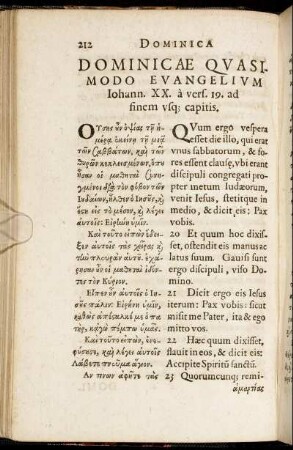 212 DOMINICA
DOMINICAE QVASI-
MODO EVANGELIVM
Iohann. XX. à vers. 19. ad
finem vsq; capitis.
Οὔσης οὖν ὀψίας τῇ ἡ-
μέρᾳ ἐκείνῃ τῇ μιᾷ
τῶν Σαββάτων, καὶ τῶν
θυρῶν κεκλεισμένων, ὅπου
ἦσαν οἱ μαθηταὶ συνη-
γμένοι διὰ τὸν φόβον τῶν
Ἰουδαίων, ἦλθεν ὁ Ἰησοῦς, καὶ
ἔστη εἰς τὸ μέσον, καὶ λέγει
αὐτοῖς· Εἰρήνη ὑμῖν.
Καὶ τοῦτο εἰπὼν ἔδει-
ξεν αὐτοῖς τὰς χεῖρας καὶ
τὴν πλευρὰν αὐτοῦ. ἐχά-
ρησαν οὖν οἱ μαθηταὶ ἰδόν-
τες τὸν Κύριον.
Εἶπεν οὖν αὐτοῖς ὁ Ἰη-
σοῦς πάλιν· Εἰρήνη ὑμῖν,
καθὼς ἀπέσταλκέ με ὁ πα-
τὴρ, κᾀγὼ πέμπω ὑμᾶς.
Καὶ τοῦτο εἰπὼν, ἐνε-
φύσησε, καὶ λέγει αὐτοῖς·
Λάβετε πνεῦμα ἅγιον.
Αν τινων ἀφῆτε τὰς
QVum ergo vespera
esset die illo, qui erat
vnus sabbatorum, & fo-
res essent clausæ, vbi erant
discipuli congregati pro-
pter metum Iudæorum,
venit Iesus, stetitque in
medio, & dicit eis: Pax
vobis.
20 Et quum hoc dixis-
set, ostendit eis manus ac
latus suum. Gauisi sunt
ergo discipuli, viso Do-
mino.
21 Dicit ergo eis Iesus
iterum: Pax vobis: sicut
misit me Pater, ita & ego
mitto vos.
22 Hæc quum dixisset,
flauit in eos, & dicit eis:
Accipite Spiritū sanctū.
23 Quorumcunq; remi-
ἁμαρτίας